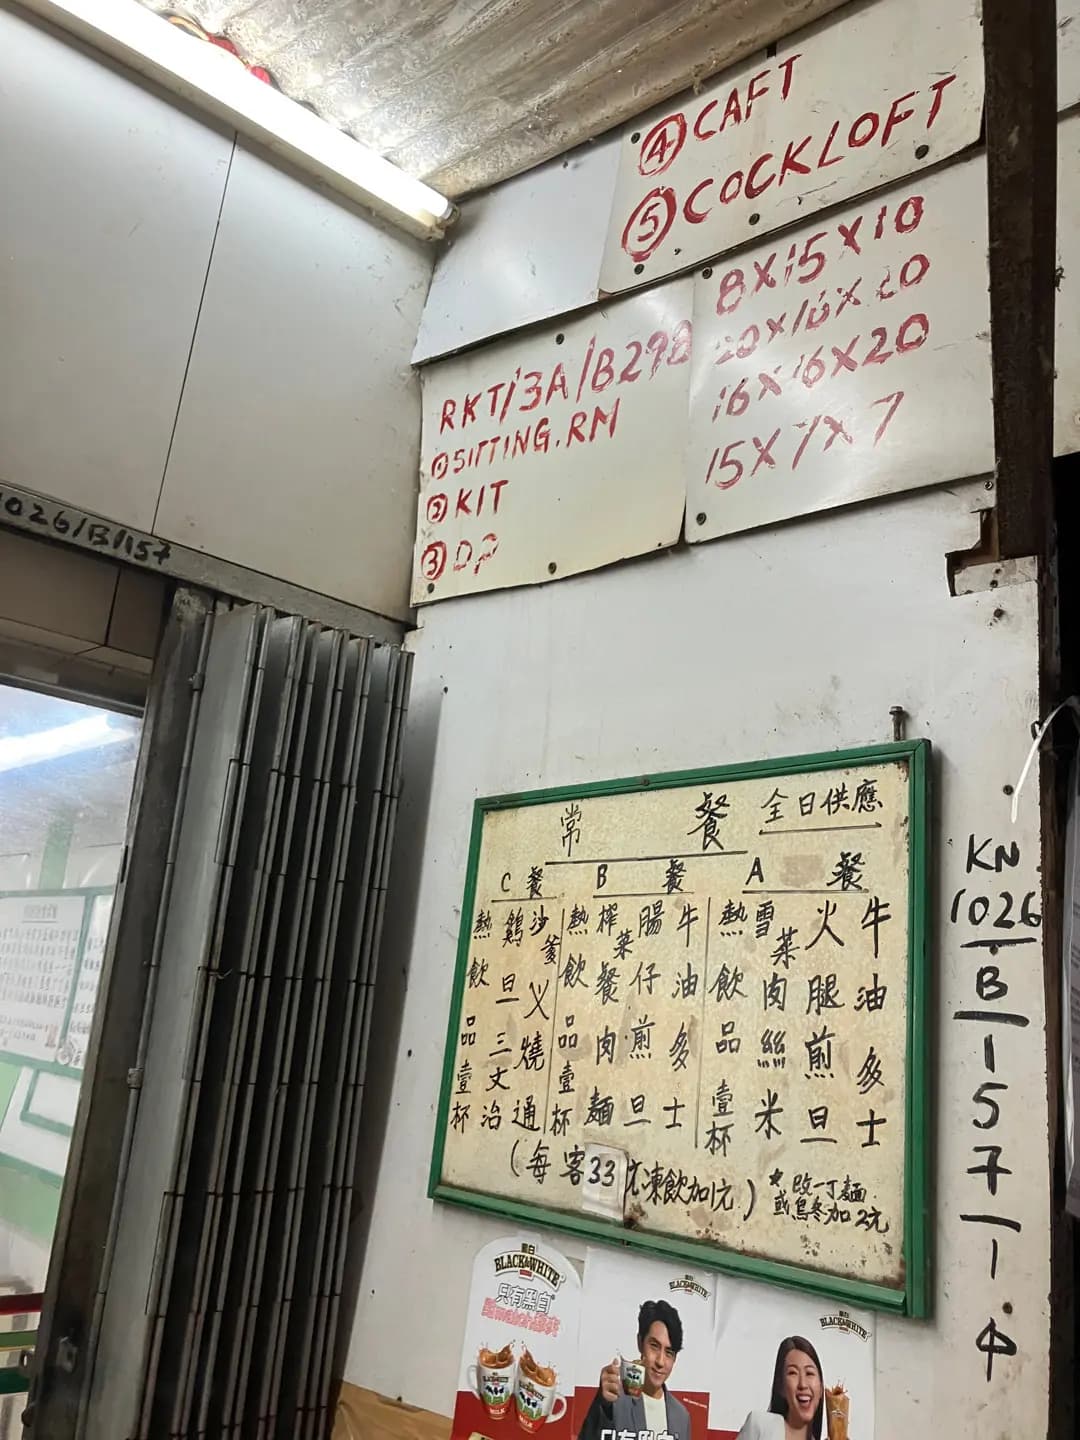 ④CAFT
⑤COCKLOFT
RKT/3A/B298
①SITTING.RM
②KIT
③DP
8X15X10
20X16X20
16X16X20
15X7X7
1026/B/157
常餐 全日供應
A餐
牛油多士
火腿煎旦
雪菜肉絲米
熱飲品壹杯
B餐
牛油多士
腸仔煎旦
榨菜餐肉麵
熱飲品壹杯
C餐
沙爹义燒通
鷄旦三文治
熱飲品壹杯
(每客33元凍飲加1元)
*改一丁麵
或烏冬加2元
KN
1026
B
1
5
7
1
中
黑白
BLACK&WHITE
只有黑白
BLACK&WHITE
黑白
BLACK&WHITE
只有黑白